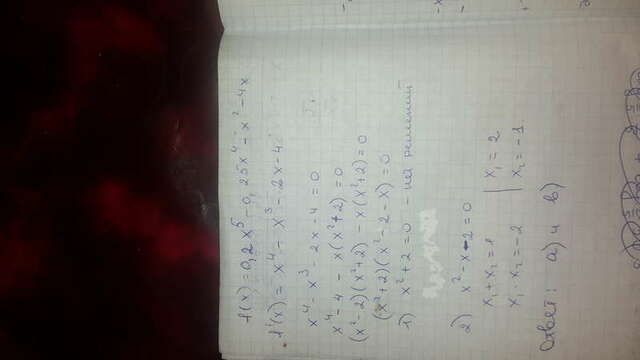 f(x) = 0,2x⁵ - 0,25x⁴ - x² - 4x
f'(x) = x⁴ - x³ - 2x - 4
x⁴ - x³ - 2x - 4 = 0
x⁴ - 4 - x(x² + 2) = 0
(x² - 2)(x² + 2) - x(x² + 2) = 0
(x² + 2)(x² - 2 - x) = 0
1) x² + 2 = 0 - нет решений
2) x² - x - 2 = 0
x₁ + x₂ = 1 | x₁ = 2
x₁ · x₂ = -2 | x₂ = -1
Ответ: а) и в)